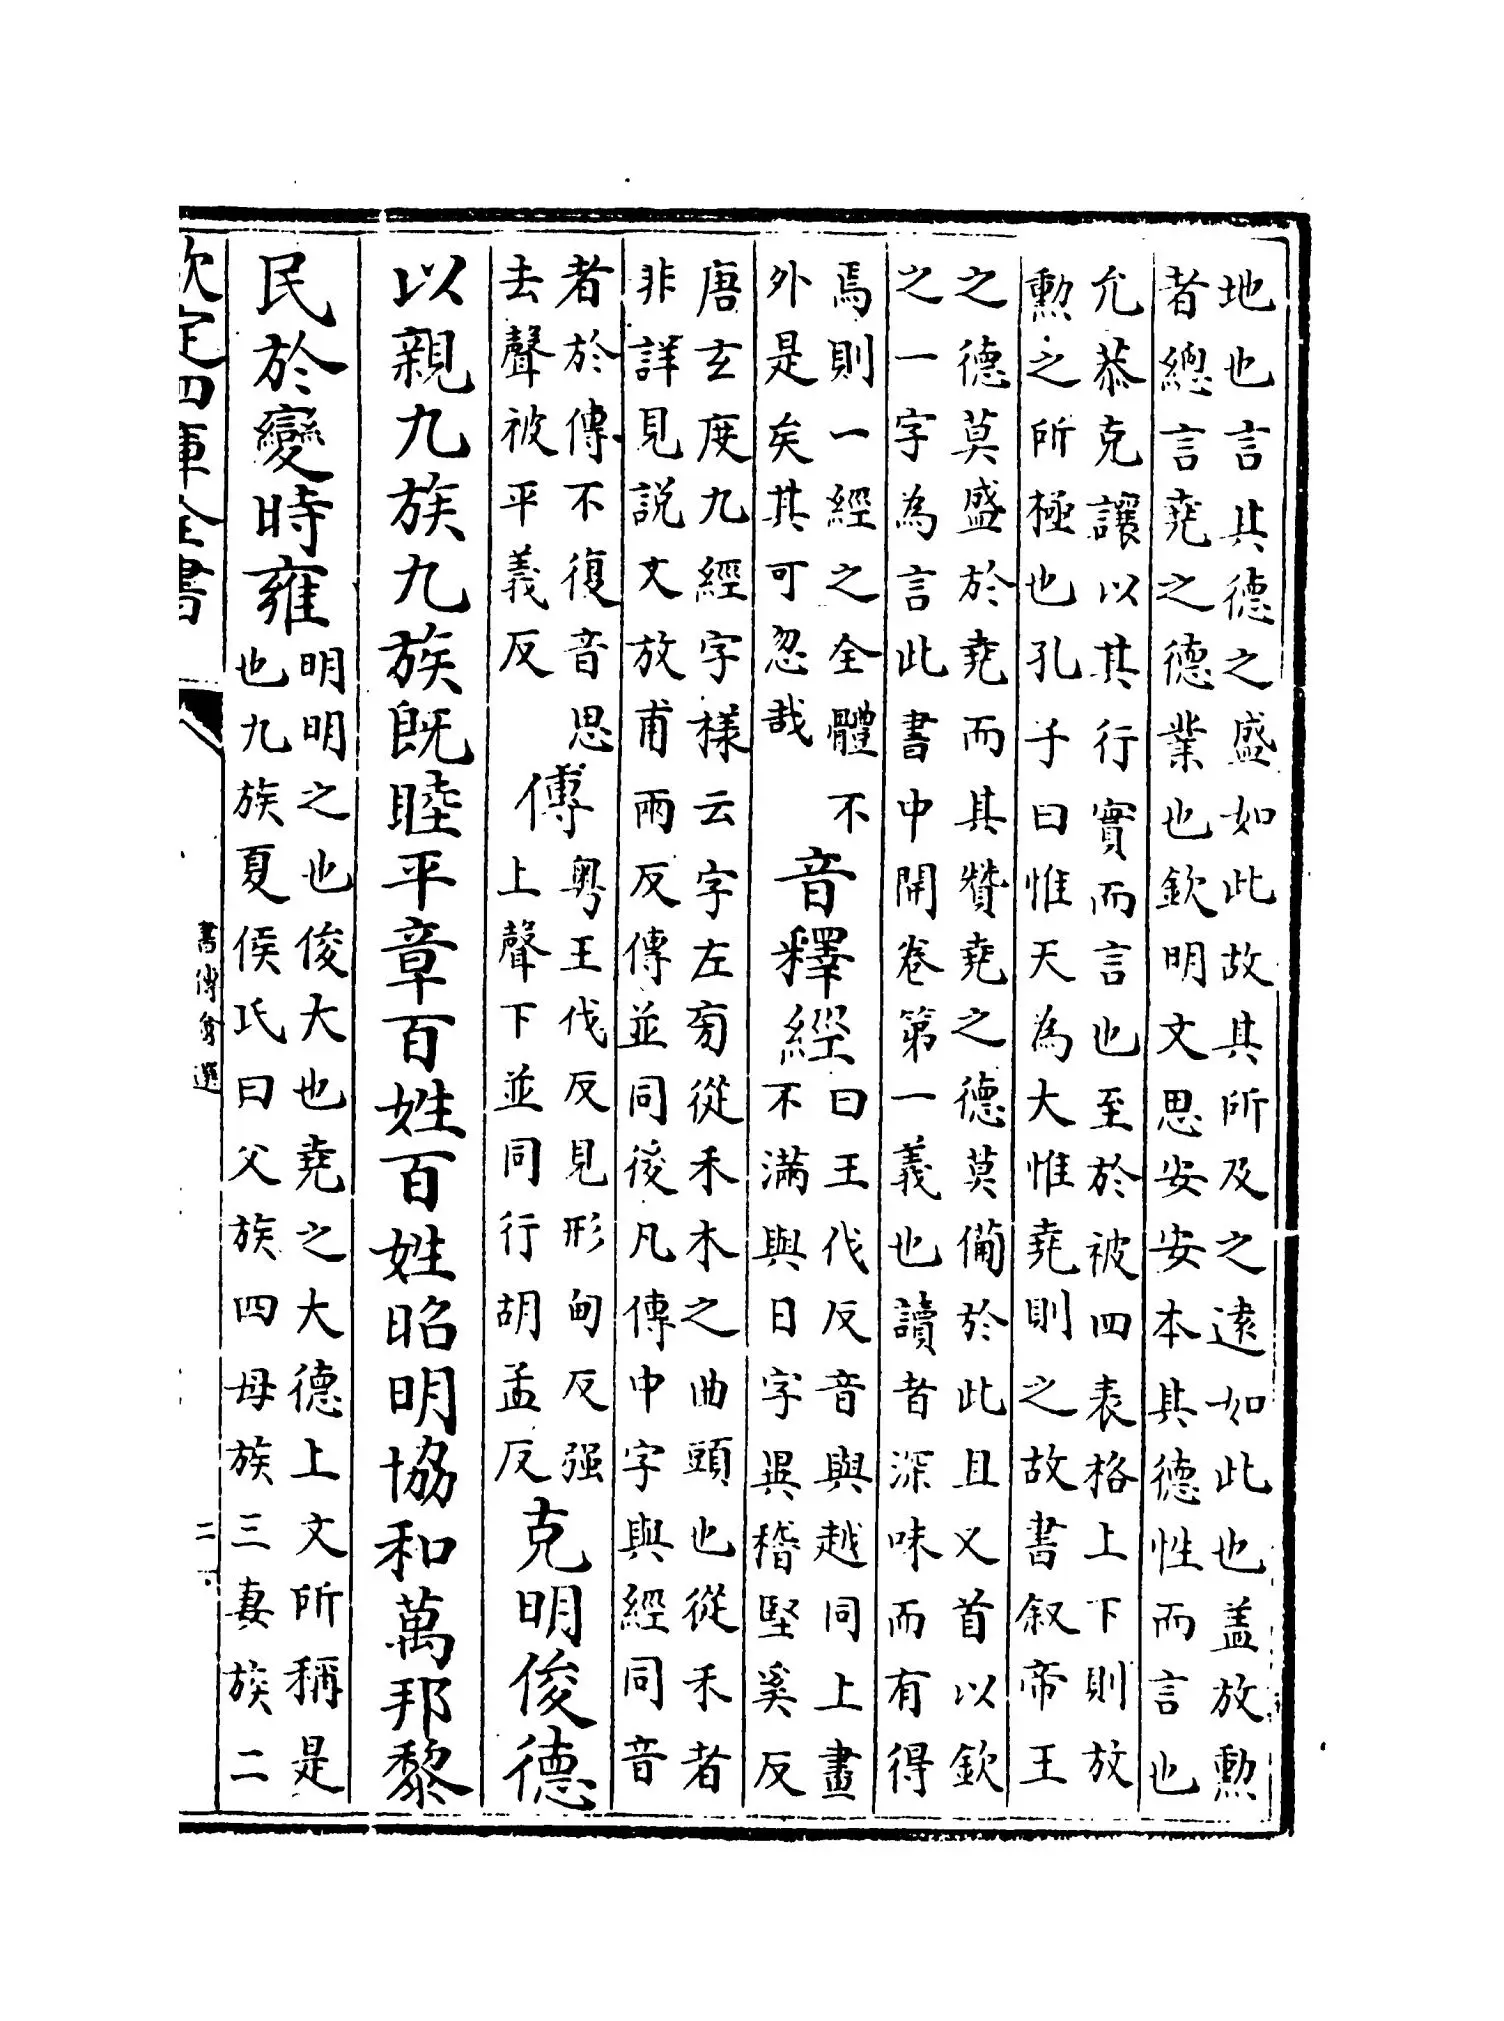 地也言其德之盛如此故其所及之逺如此也盖放勲
者緫言堯之德業也欽明文思安安本其德性而言也
允恭克讓以其行實而言也至於被四表格上下則放
勲之所極也孔子曰惟天為大惟堯則之故書叙帝王
之德莫盛於堯而其贊堯之德莫備於此且又首以欽
之一字為言此書中開卷第一義也讀者深味而有得
焉則一經之全體不
外是矣其可忽哉
音釋經
曰王伐反音與越同上畫
不滿與日字異稽堅奚反
唐玄度九經字様云字左㫄從禾木之曲頭也從禾者
非詳見説文放甫兩反傳並同後凡傳中字與經同音
者於傳不復音思
去聲被平義反
傳
粤王伐反見形甸反强
上聲下並同行胡孟反
克明俊德
以親九族九族既睦平章百姓百姓昭明協和萬邦黎
民於變時雍
明明之也俊大也堯之大德上文所稱是
也九族夏侯氏曰父族四母族三妻族二
欽定四庫全書
書傳㑹選
二